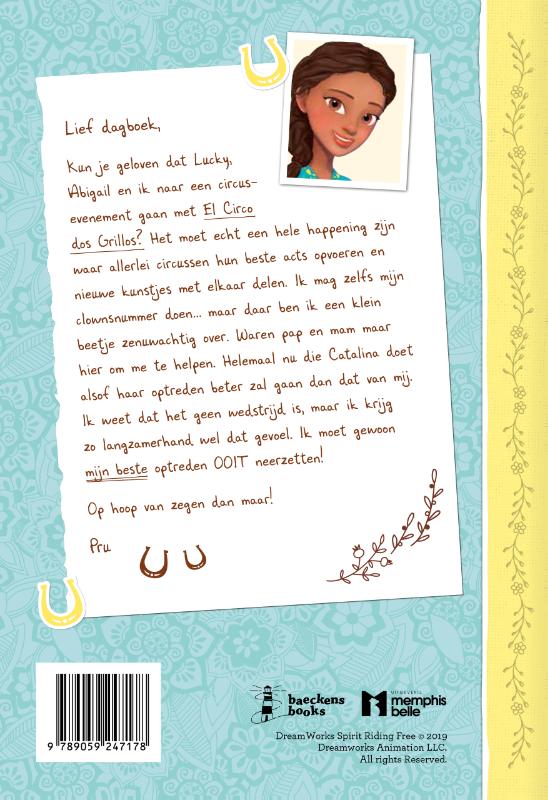 Lief dagboek,
Kun je geloven dat Lucky,
Abigail en ik naar een circus-
evenement gaan met El Circo
dos Grillos? Het moet echt een hele happening zijn
waar allerlei circussen hun beste acts opvoeren en
nieuwe kunstjes met elkaar delen. Ik mag zelfs mijn
clownsnummer doen... maar daar ben ik een klein
beetje zenuwachtig over. Waren pap en mam maar
hier om me te helpen. Helemaal nu die Catalina doet
alsof haar optreden beter zal gaan dan dat van mij.
Ik weet dat het geen wedstrijd is, maar ik krijg
zo langzamerhand wel dat gevoel. Ik moet gewoon
mijn beste optreden OOIT neerzetten!
Op hoop van zegen dan maar!
Pru
9 789059 247178
baeckens
books
UITGEVERIJ
memphis
belle
DreamWorks Spirit Riding Free © 2019
Dreamworks Animation LLC.
All rights Reserved.